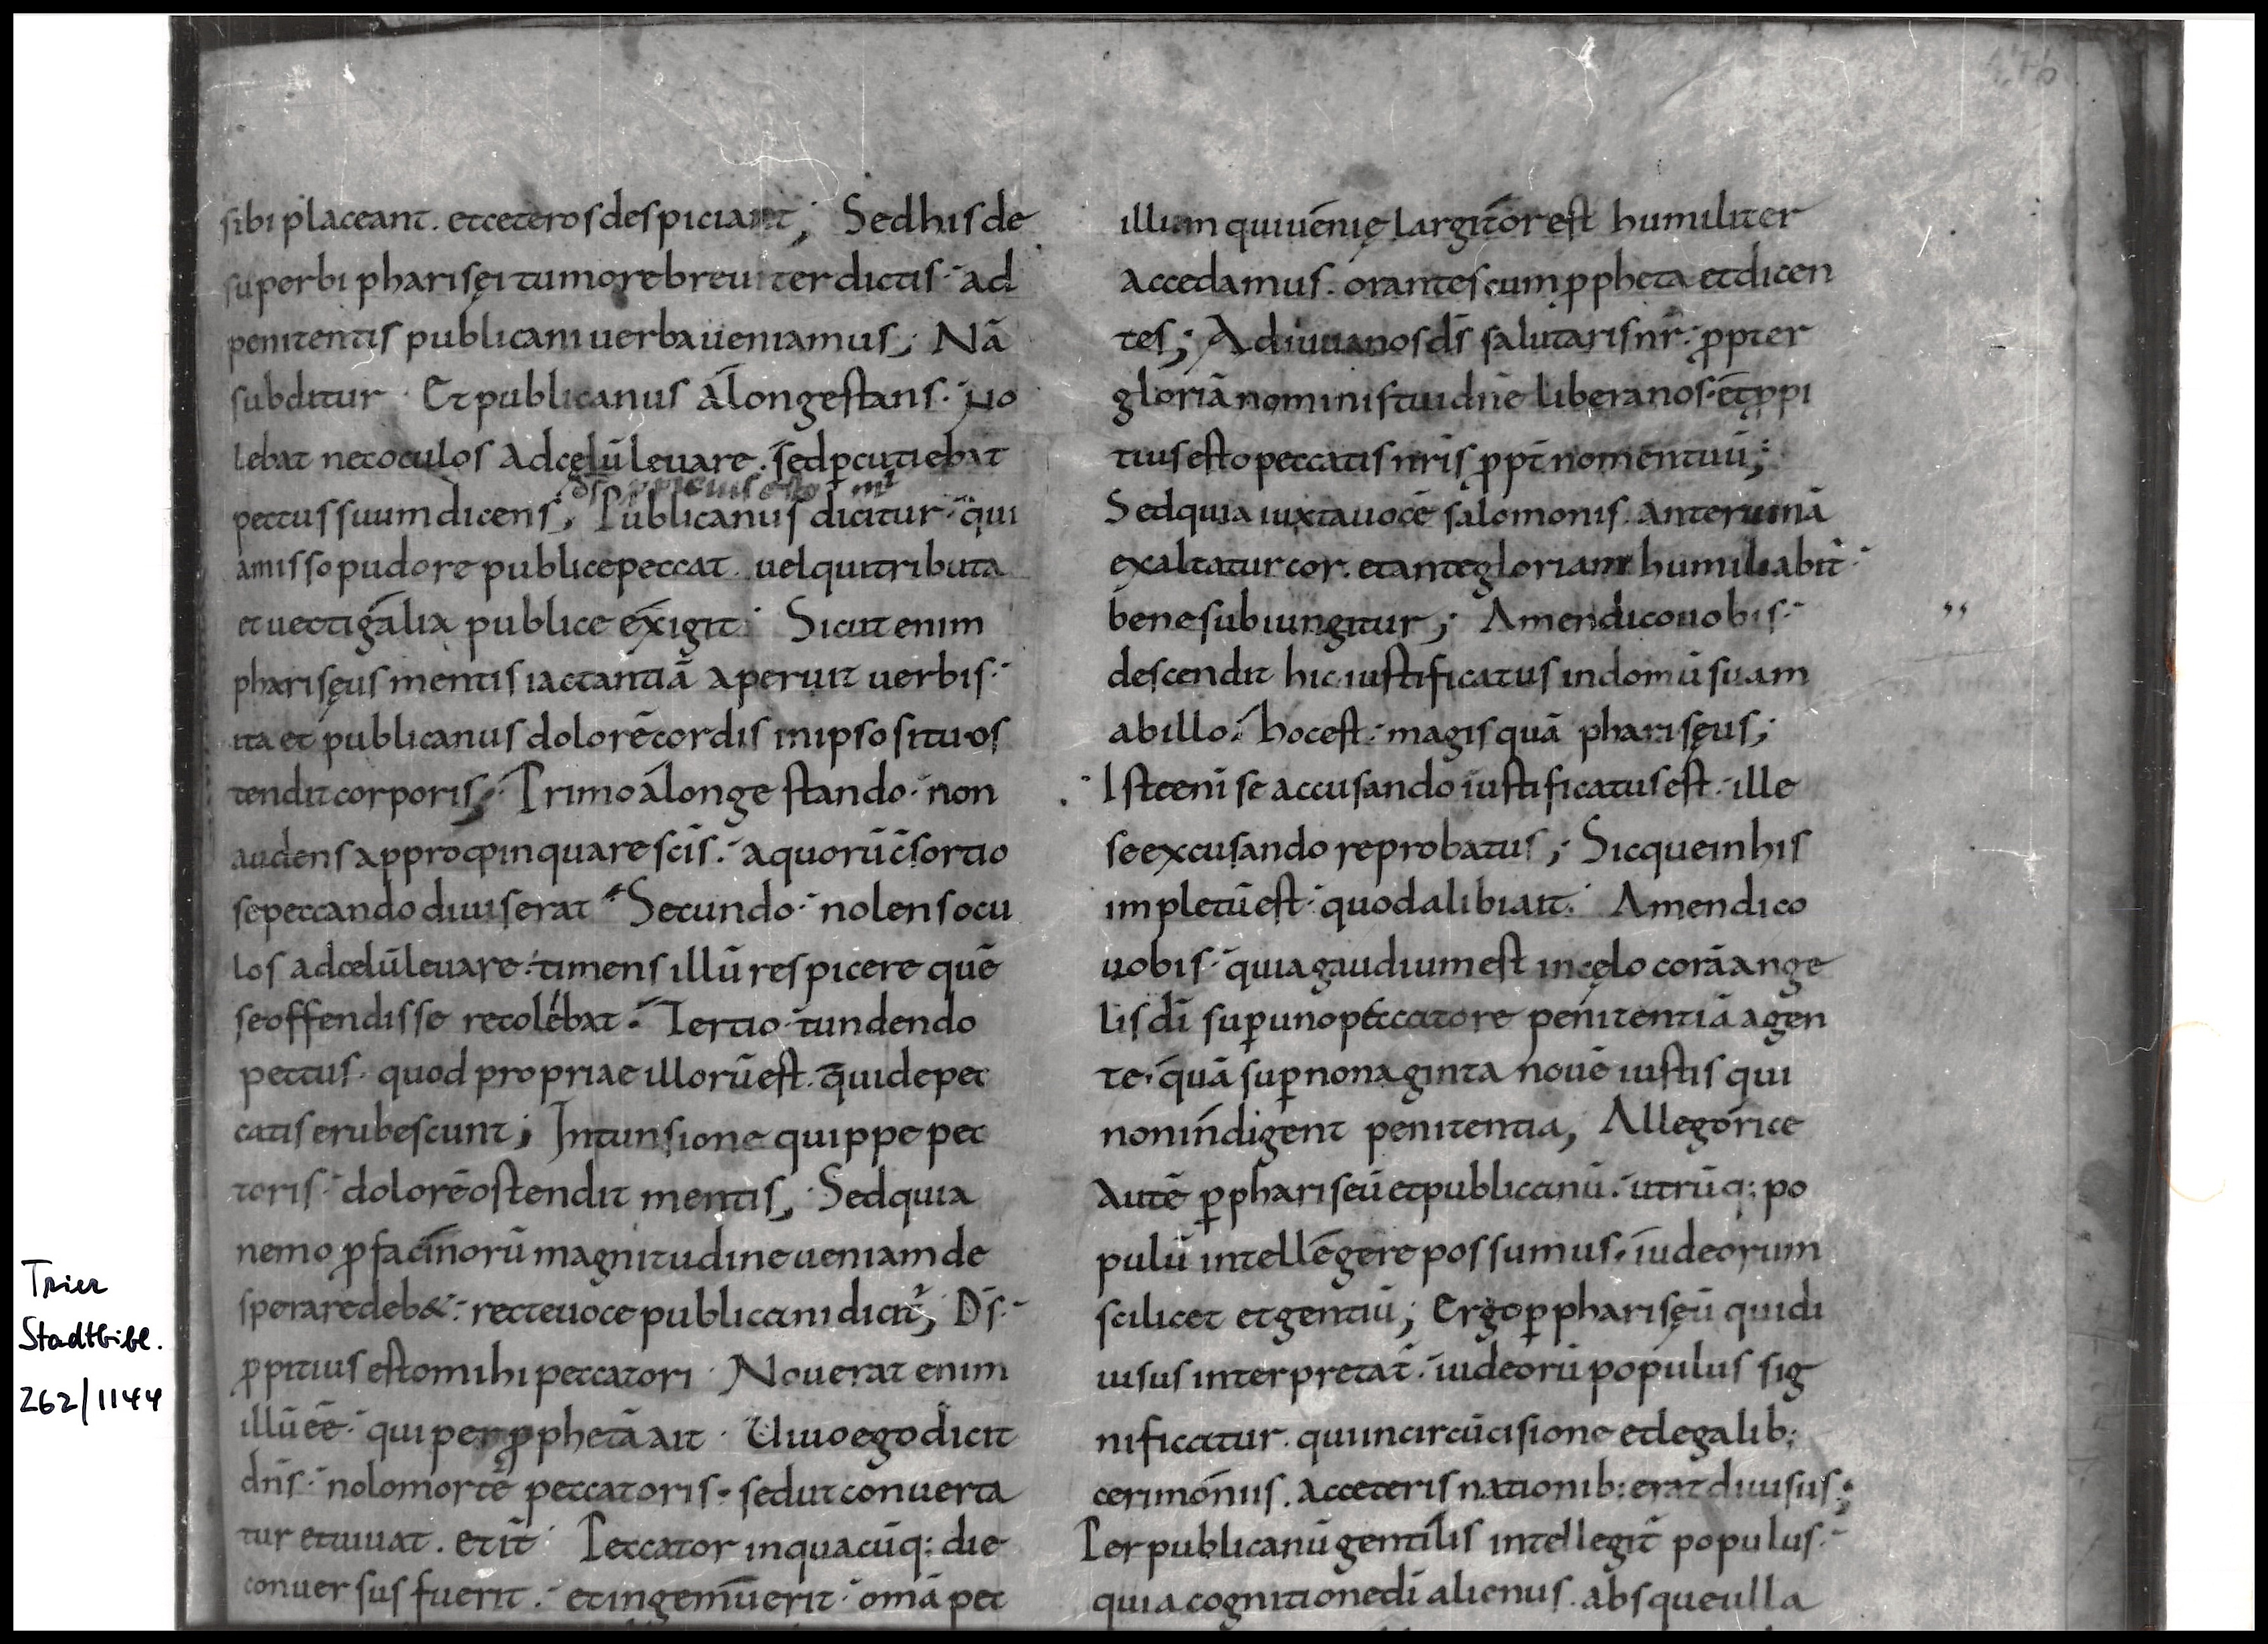 sibi placeant. et ceteros despiciant; Sed his de
superbi pharisęi tumore breuiter dictis· ad
penitentis publicani uerba ueniamus; Nā
subditur· Et publicanus á longe stans· no
lebat nec oculos ad cęlū leuare. sed p̱cutiebat
ds̄ p̱pitius esto m̄
pectus suum dicens; Publicanus dicitur· qui
amisso pudore publice peccat. uel qui tributa
et uectigalia publice exigit· Sicut enim
pharisęus mentis iactantiā aperuit uerbis·
ita et publicanus dolorē cordis in ipso situ os
tendit corporis; Primo á longe stando· non
audens appropinquare sc̄is· a quorū c̄sortio
se peccando diuiserat· Secundo· nolens ocu
los ad cęlū leuare· timens illū respicere quē
se offendisse recolebat· Tertio· tundendo
pectus· quod propriae illorū est. qui de pec
catis erubescunt; In tunsione quippe pec
toris· dolorē ostendit mentis; Sed quia
nemo ꝓ facinorū magnitudine ueniam de
sperare deb&· recte uoce publicani dicit̄; Ds̄·
ꝓpitius esto mihi peccatori· Nouerat enim
illū ēē· qui per ꝓphetā ait· Uiuo ego dicit
dn̄s· nolo mortē peccatoris· sed ut conuerta
tur et uiuat. et it̄· Peccator in quacūq; die
conuersus fuerit· et ingemuerit· om̄a pec
illum qui uenię largitor est humiliter
accedamus· orantes cum ꝓpheta et dicen
tes; Adiuua nos ds̄ salutaris nr̄· ꝓpter
gloriā nominis tui dn̄e libera nos· et ꝓpi
tius esto peccatis nr̄is ꝓpt̄ nomen tuū;
Sed quia iuxta uocē salomonis· ante ruinā
exaltatur cor. et ante gloriam humiliabit̄·
bene subiungitur; Amen dico uobis·
descendit hic iustificatus in domū suam
ab illo· hoc est· magis quā pharisęus;
Iste eni se accusando iustificatus est· ille
se excusando reprobatus; Sicque in his
impletū est· quod alibi ait· Amen dico
uobis· quia gaudium est in cęlo corā ange
lis dī sup̱ uno peccatore penitentiā agen
te· quā sup̱ nonaginta nouē iustis qui
non indigent penitentia; Allegorice
autē p̱ phariseū et publicanū· utrūq; po
pulū intellegere possumus· iudeorum
scilicet et gentiū; Ergo p̱ pharisęū qui di
uisus interpretat̄· iudeorū populus sig
nificatur· qui in circūcisione et legalib;
cerimoniis· a ceteris nationib; erat diuisus;
Per publicanū gentilis intellegit̄ populus·
qui a cognitione dī alienus· absque ulla
Trier
Stadtbibl.
262/1144